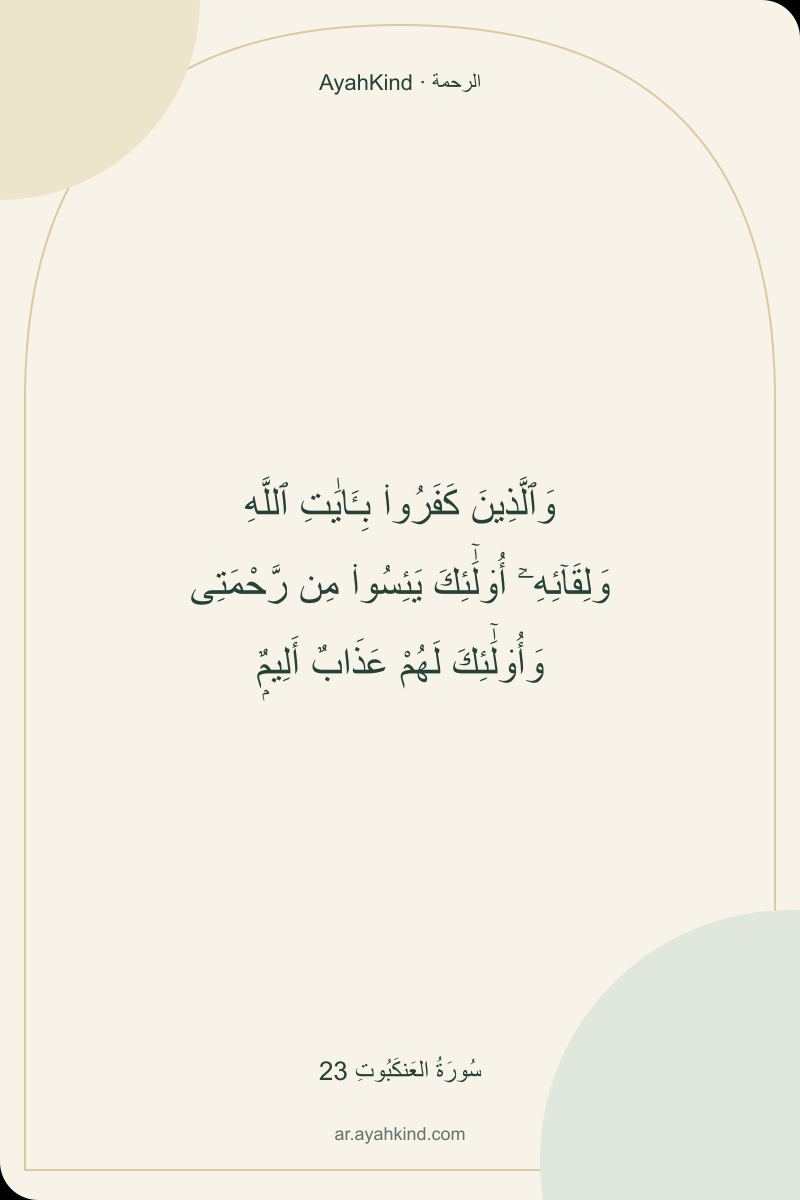 AyahKind · الرحمة
وَٱلَّذِينَ كَفَرُوا۟ بِـَٔايَٰتِ ٱللَّهِ
وَلِقَآئِهِۦٓ أُو۟لَٰٓئِكَ يَئِسُوا۟ مِن رَّحْمَتِى
وَأُو۟لَٰٓئِكَ لَهُمْ عَذَابٌ أَلِيمٌۭ
سُورَةُ العَنكَبُوتِ 23
ar.ayahkind.com